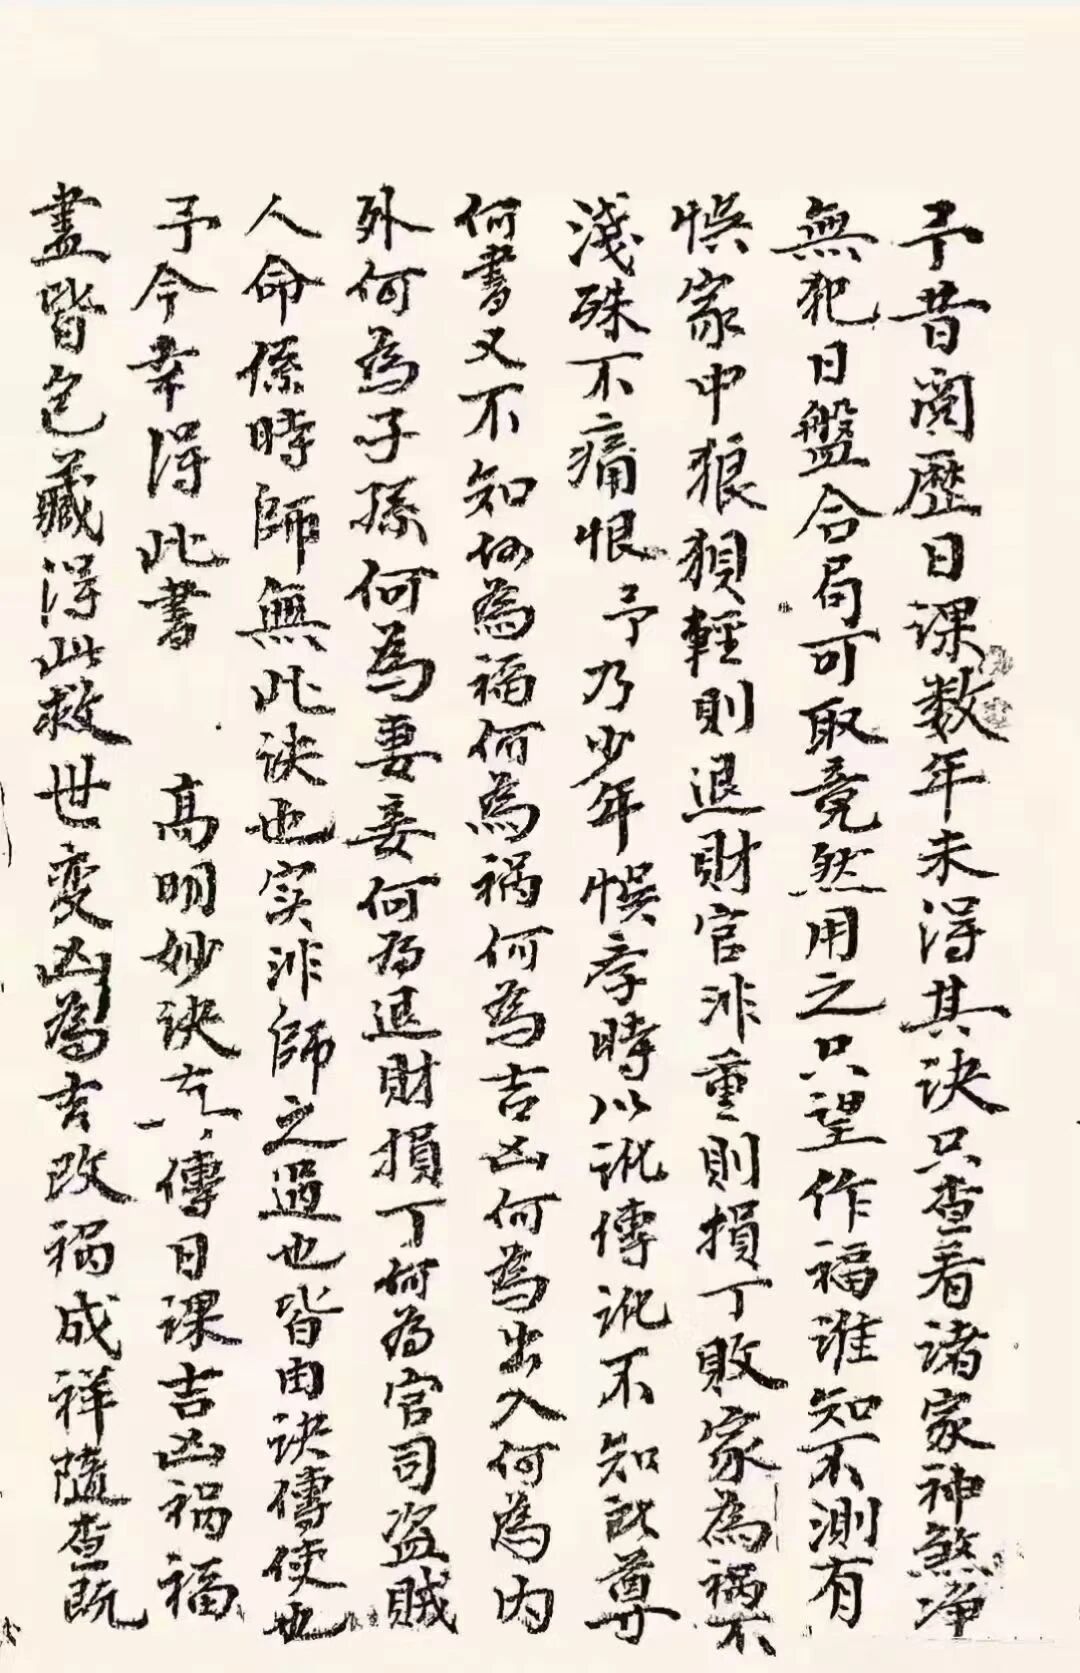 予昔閱歷日課数年未得其诀只查看诸家神煞净
無犯日盤合局可取竟然用之只望作福谁知不測有
悞家中狼狽輕則退財官非重則損丁敗家為禍不
淺殊不痛恨予乃少年悞李時以訛傳訛不知所尊
何書又不知何為福何為祸何為吉凶何為出入何為内
外何為子孫何為妻妾何為退財損丁何為官司盗賊
人命係時師無此诀也实非師之過也皆由诀傳使也
予今幸得此書 高明妙诀 傳日课吉凶祸福
盡皆包藏得此救世变凶為吉改祸成祥隨查既